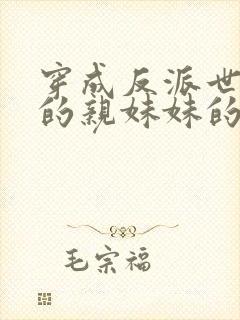 穿成反派世
的親妹妹的
毛宗福